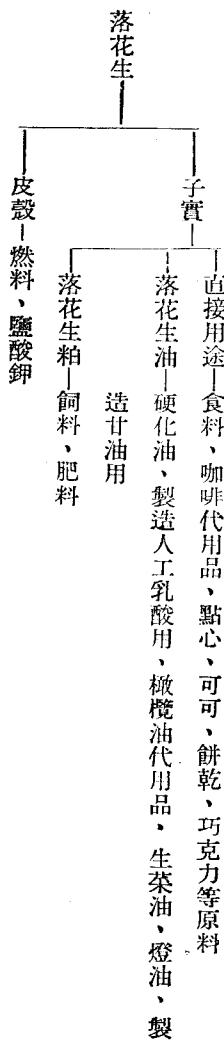 落花生
子實
直接用途—食料、咖啡代用品、點心、可可、餅乾、巧克力等原料
落花生油—硬化油、製造人工乳酸用、橄欖油代用品、生菜油、燈油、製
造甘油用
落花生粕—飼料、肥料
皮殼—燃料、鹽酸鉀